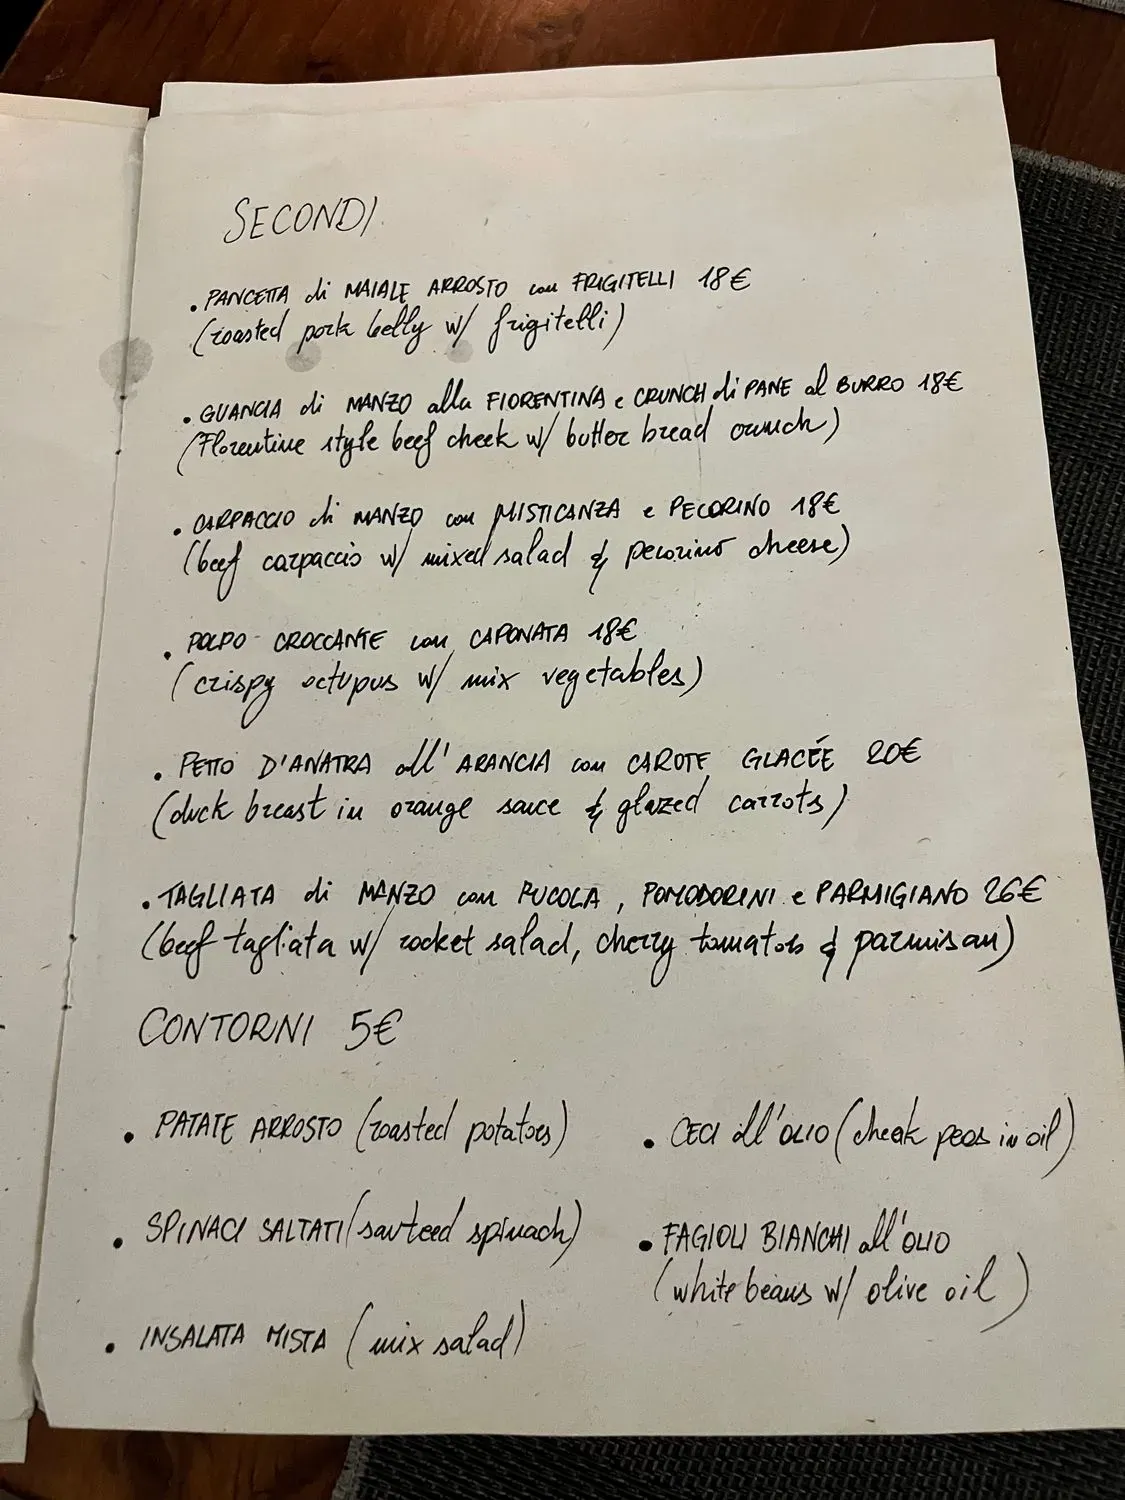 SECONDI
• PANCETTA di MAIALE ARROSTO con FRIGITELLI 18€
(roasted pork belly w/ frigitelli)
• GUANCIA di MANZO alla FIORENTINA e CRUNCH di PANE al BURRO 18€
(Florentine style beef cheek w/ butter bread crunch)
• CARPACCIO di MANZO con MISTICANZA e PECORINO 18€
(beef carpaccio w/ mixed salad & pecorino cheese)
• POLPO CROCCANTE con CAPONATA 18€
(crispy octupus w/ mix vegetables)
• PETTO D'ANATRA all'ARANCIA con CAROTE GLACÉE 20€
(duck breast in orange sauce & glazed carrots)
• TAGLIATA di MANZO con RUCOLA, POMODORINI e PARMIGIANO 26€
(beef tagliata w/ rocket salad, cherry tomatos & parmisan)
CONTORNI 5€
• PATATE ARROSTO (roasted potatoes)
• CECI all'OLIO (cheak peas in oil)
• SPINACI SALTATI (sauteed spinach)
• FAGIOLI BIANCHI all'OLIO
(white beans w/ olive oil)
• INSALATA MISTA (mix salad)